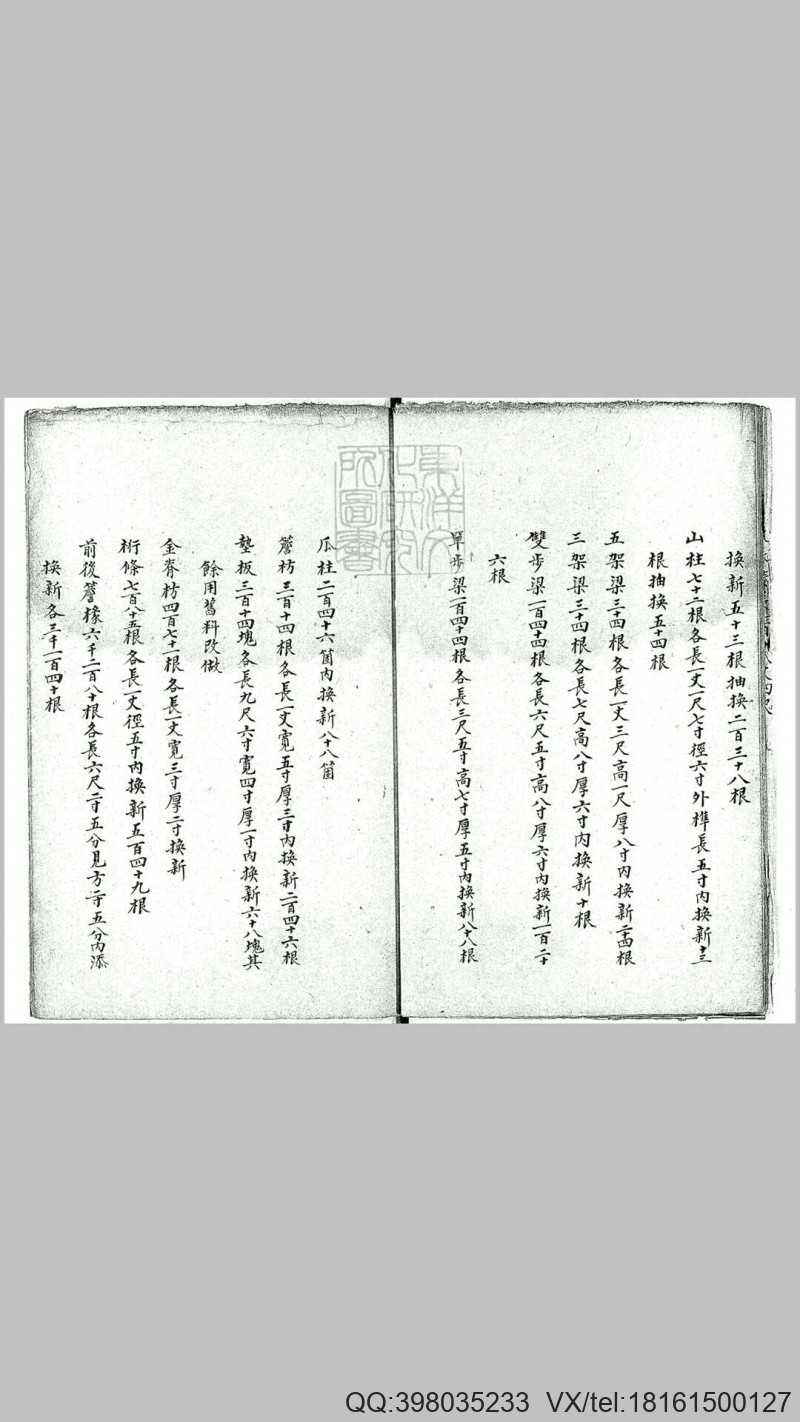 換新五十三根抽換二百三十八根
山柱七十二根各長一丈一尺七寸徑六寸外榫長五寸內換新十三
根抽換五十四根
五架梁三十四根各長一丈三尺高一尺厚八寸內換新二十四根
三架梁三十四根各長七尺高八寸厚六寸內換新十根
雙步梁一百四十四根各長六尺五寸高八寸厚六寸內換新一百二十
六根
單步梁一百四十四根各長三尺五寸高七寸厚五寸內換新八十八根
東洋文化研究所圖書
瓜柱二百四十六箇內換新八十八箇
簷枋三百十四根各長一丈寬五寸厚三寸內換新二百四十六根
墊板三百十四塊各長九尺六寸寬四寸厚一寸內換新六十八塊其
餘用舊料改做
金脊枋四百七十一根各長一丈寬三寸厚二寸換新
桁條七百八十五根各長一丈徑五寸內換新五百四十九根
前後簷椽六千二百八十根各長六尺二寸五分見方二寸五分內添
換新各三千一百四十根
QQ:398035233 VX/tel:18161500127